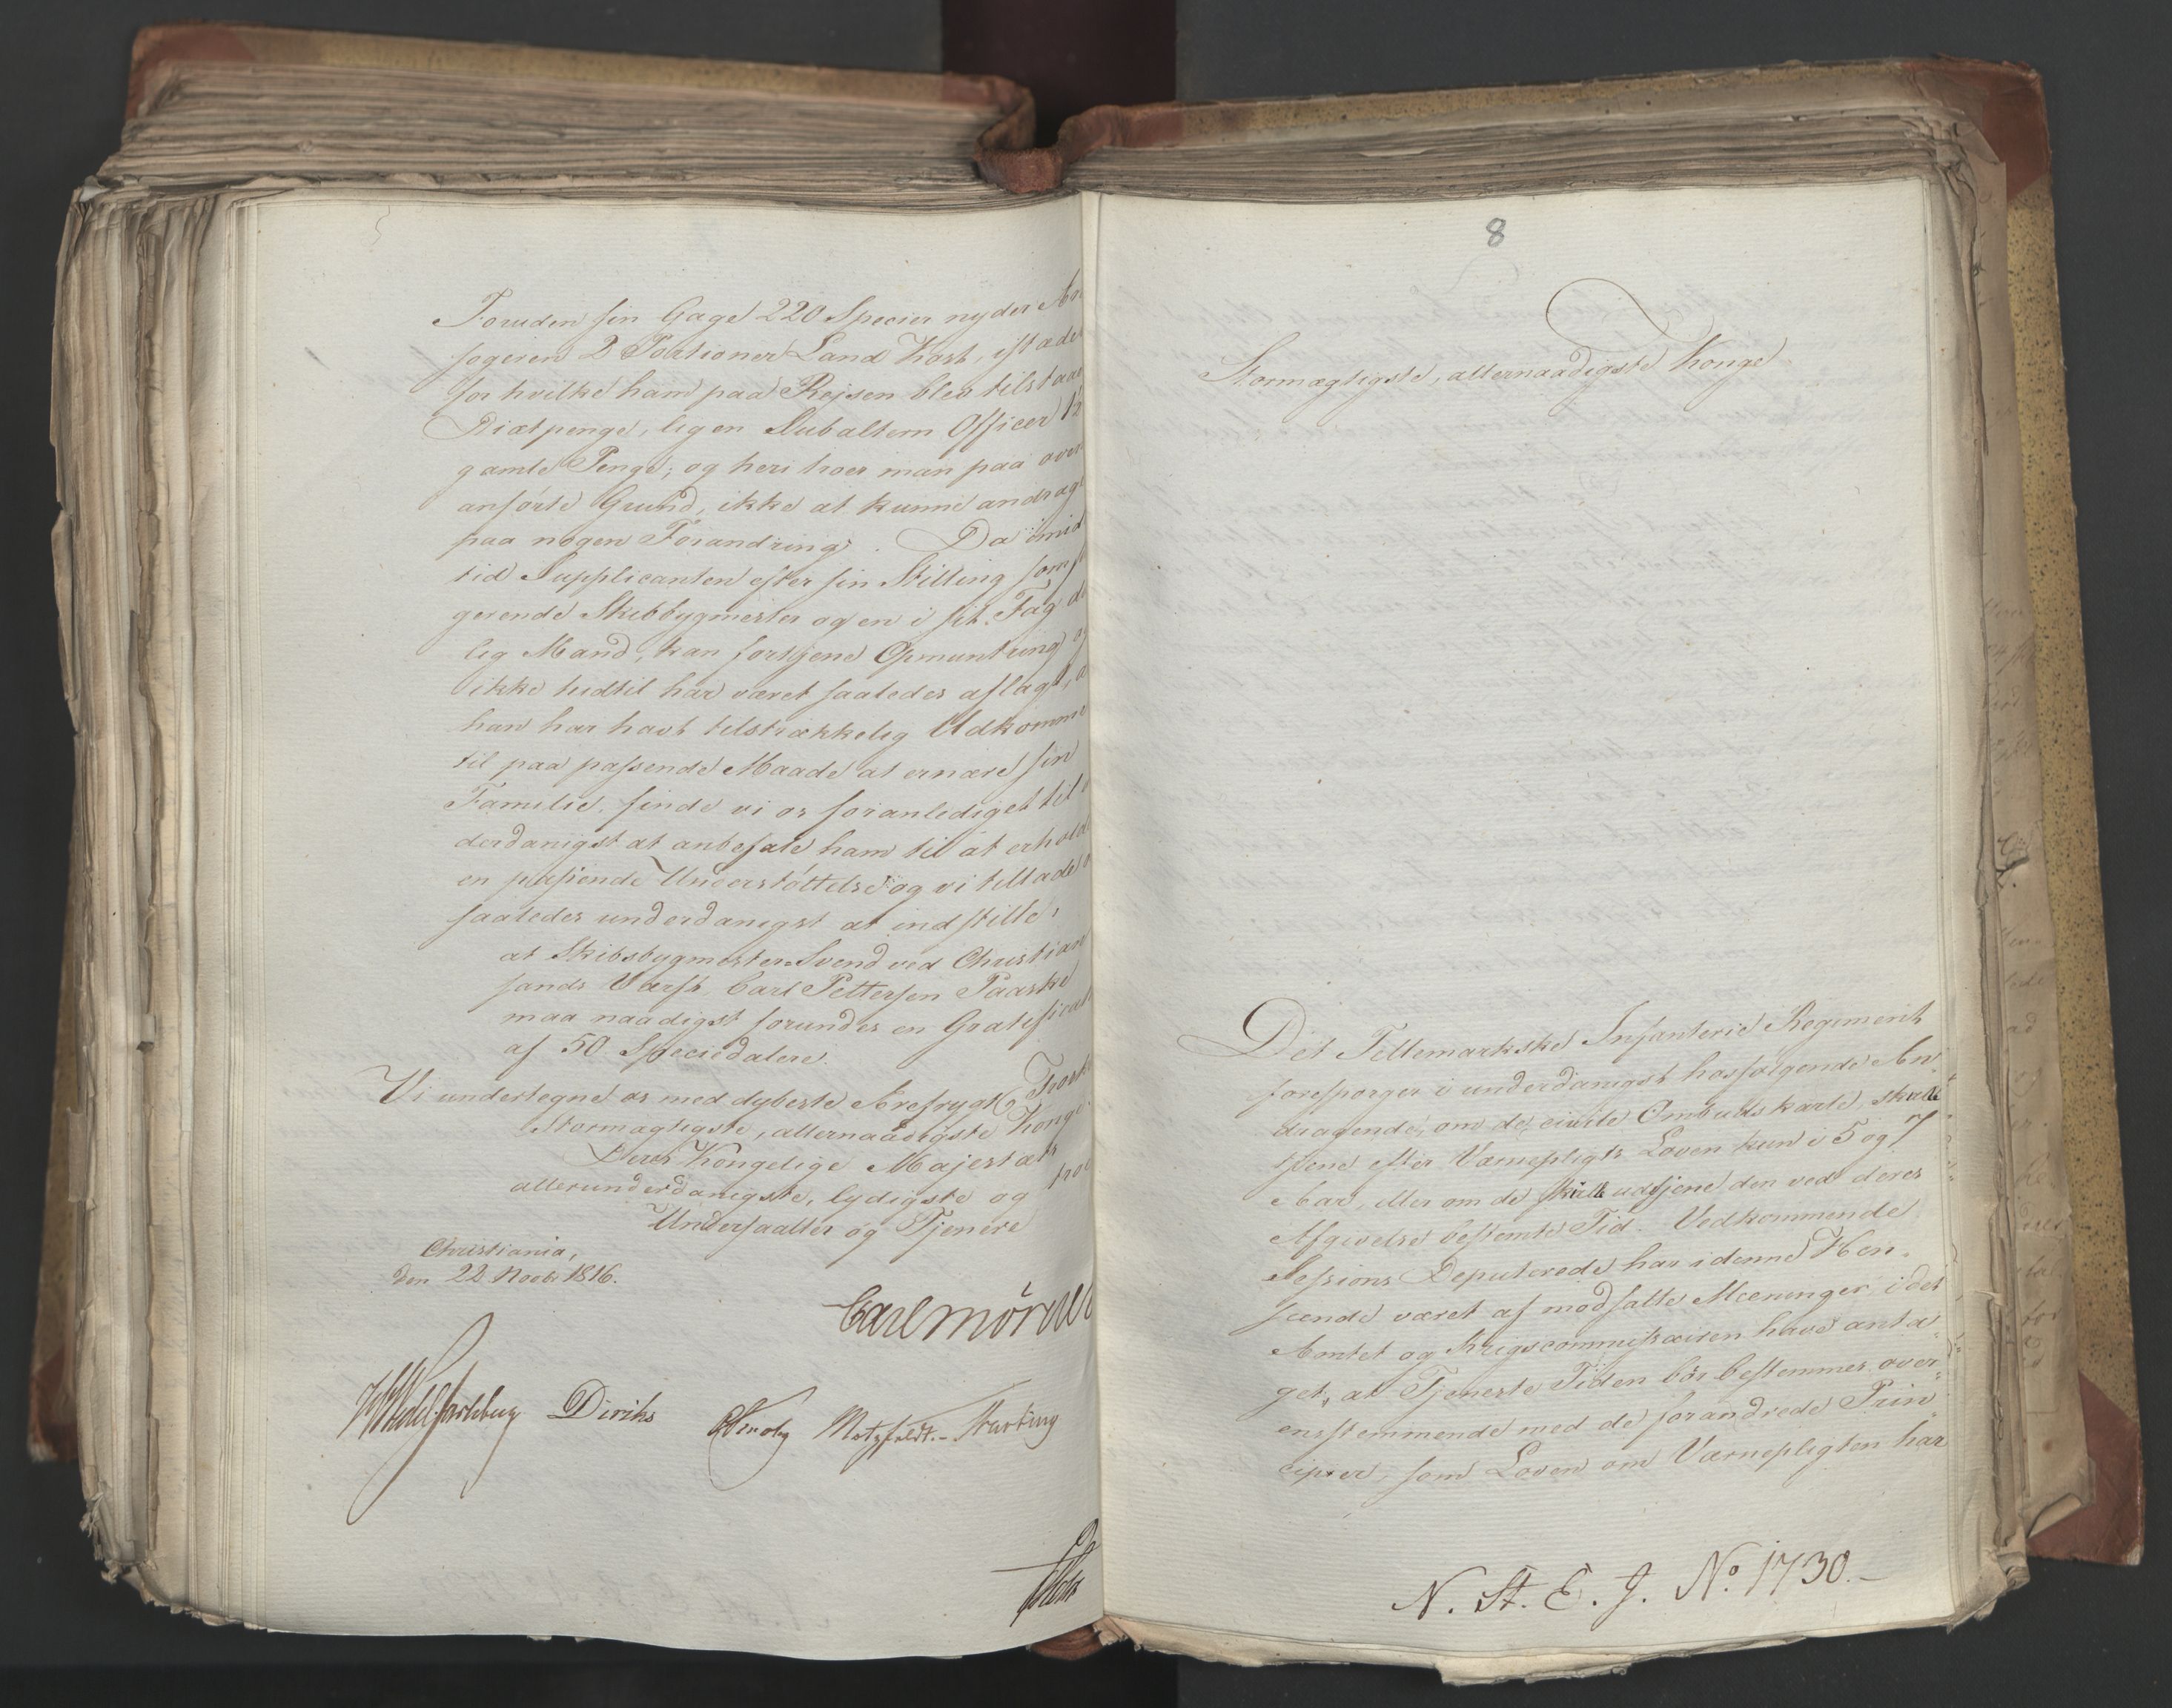 Foruden sin Gage 220 Specier nyder An
søgeren 2 Portioner Land Kost, istæde
for hvilke ham paa Rejsen blev tilstaae
Diætpenge, lig en Subaltern Officer
gamle Penge; og heri troer man paa oven
anførte Grund, ikke at kunne andrage
paa nogen Forandring. Da imid
tid Supplicanten efter sin Stilling som fun
gerende Skibbygmester og en i sit Fag du
lig Mand, kan fortjene Opmuntring og
ikke hidtil har været saaledes aflagt, at
han har havt tilstrækkelig Udkomme
til paa passende Maade at ernære sin
Familie, finde vi os foranlediget til un
derdanigst at anbefale ham til at erholde
en passende Understøttelse og vi tillade os
saaledes underdanigst at indstille,
at Skibsbygmester-Svend ved Christian
sands Værft Carl Pettersen Paaske
maa naadigst forundes en Gratificati
af 50 Speciedalere.
Vi undertegne os med dybeste Ærefrygt,
Stormægtigste, allernaadigste Konge.
Deres Kongelige Majestæts
allerunderdanigste, lydigste og troe
Undersaatter og Tjenere
Christiania,
den 22 Novbr 1816.
Carl Mörner
Wedel Jarlsberg Diriks Krohg Motzfeldt.- Hartvig
8
Stormægtigste, allernaadigste Konge
Det Tellemarkske Infanterie Regiment
forespørger i underdanigst hosfølgende An-
dragende, om de civile Ombudskarle, skulle
tjene efter Værnepligts Loven kun i 5 og 7
Aar, eller om de skulle udtjene den ved deres
Afgivelse bestemte Tid. Vedkommende
Sessions Deputerede har i denne Hen-
seende været af modsatte Meeninger, i det
Amtet og Krigscommissairen have anta-
get, at Tjeneste Tiden bør bestemmes over-
ensstemmende med de forandrede Prin-
ciper, som Loven om Værnepligten har
N. St. E. J. No. 1730.-